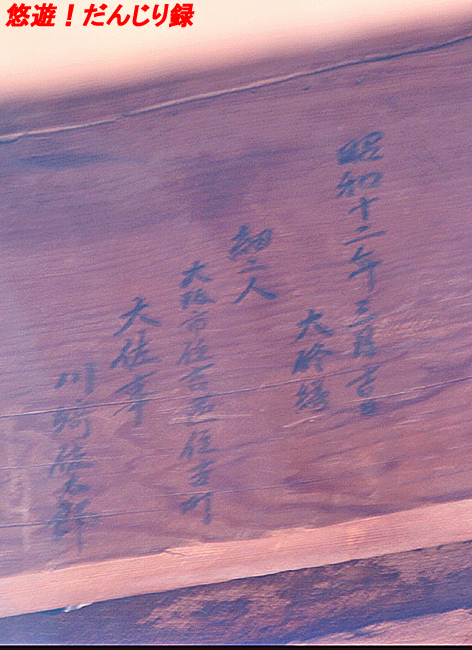 悠遊！だんじり録
昭和十二年三月吉日
大修繕
細工人
大阪市住吉区住吉町
大佐事
川崎 太郎